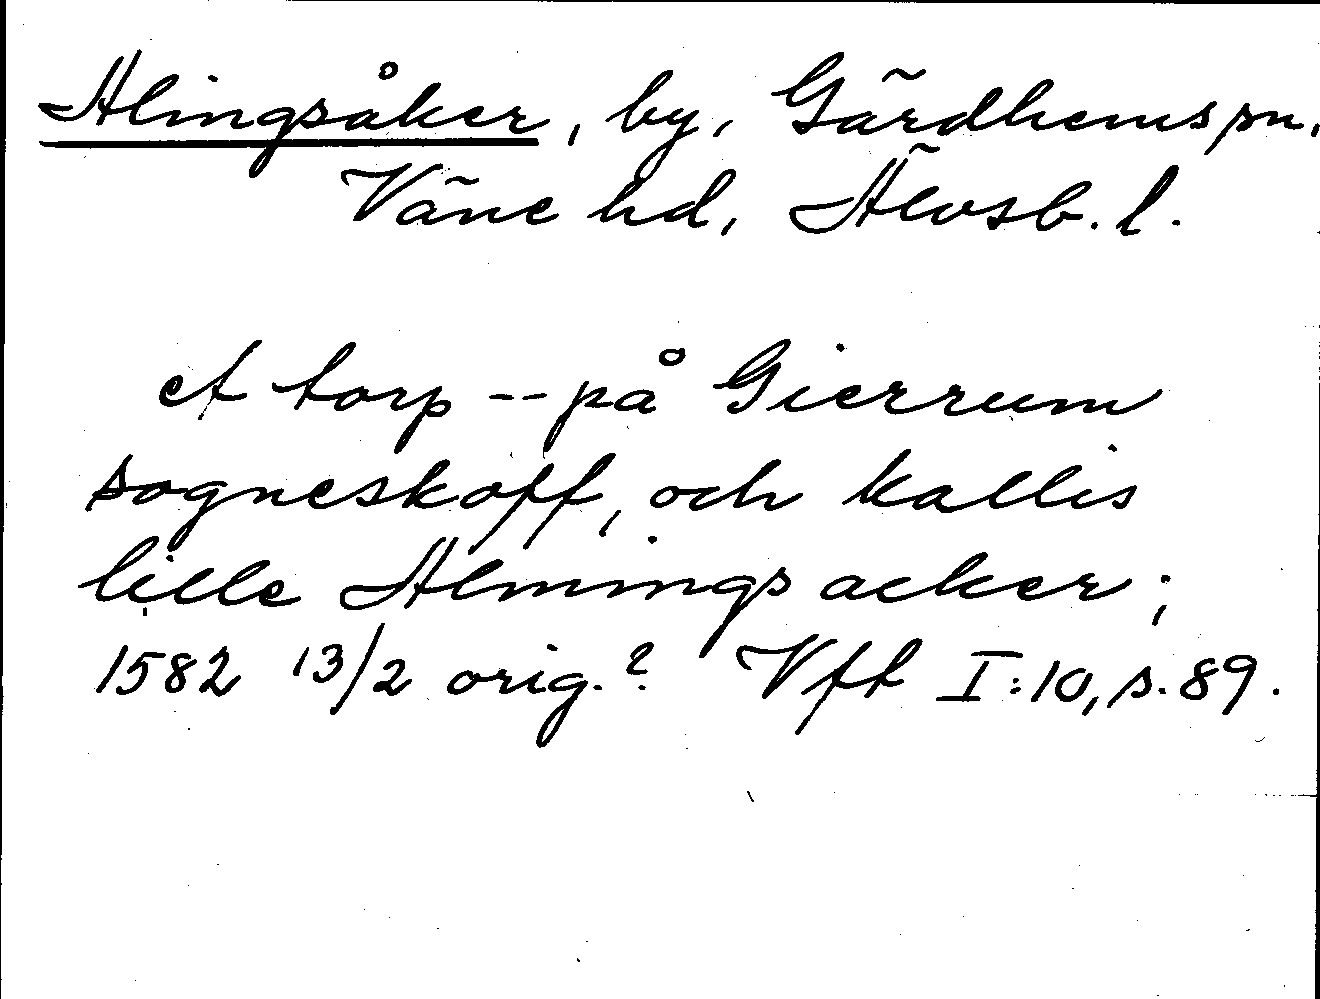 Alingsåker, by, Gärdhems sn,
Väne hd, Älvsb. l.
et torp -- på Gierrum
sogneskoff, och kallis
lille Almingsacker;
1582 13/2 orig.? Vft I:10, s. 89.